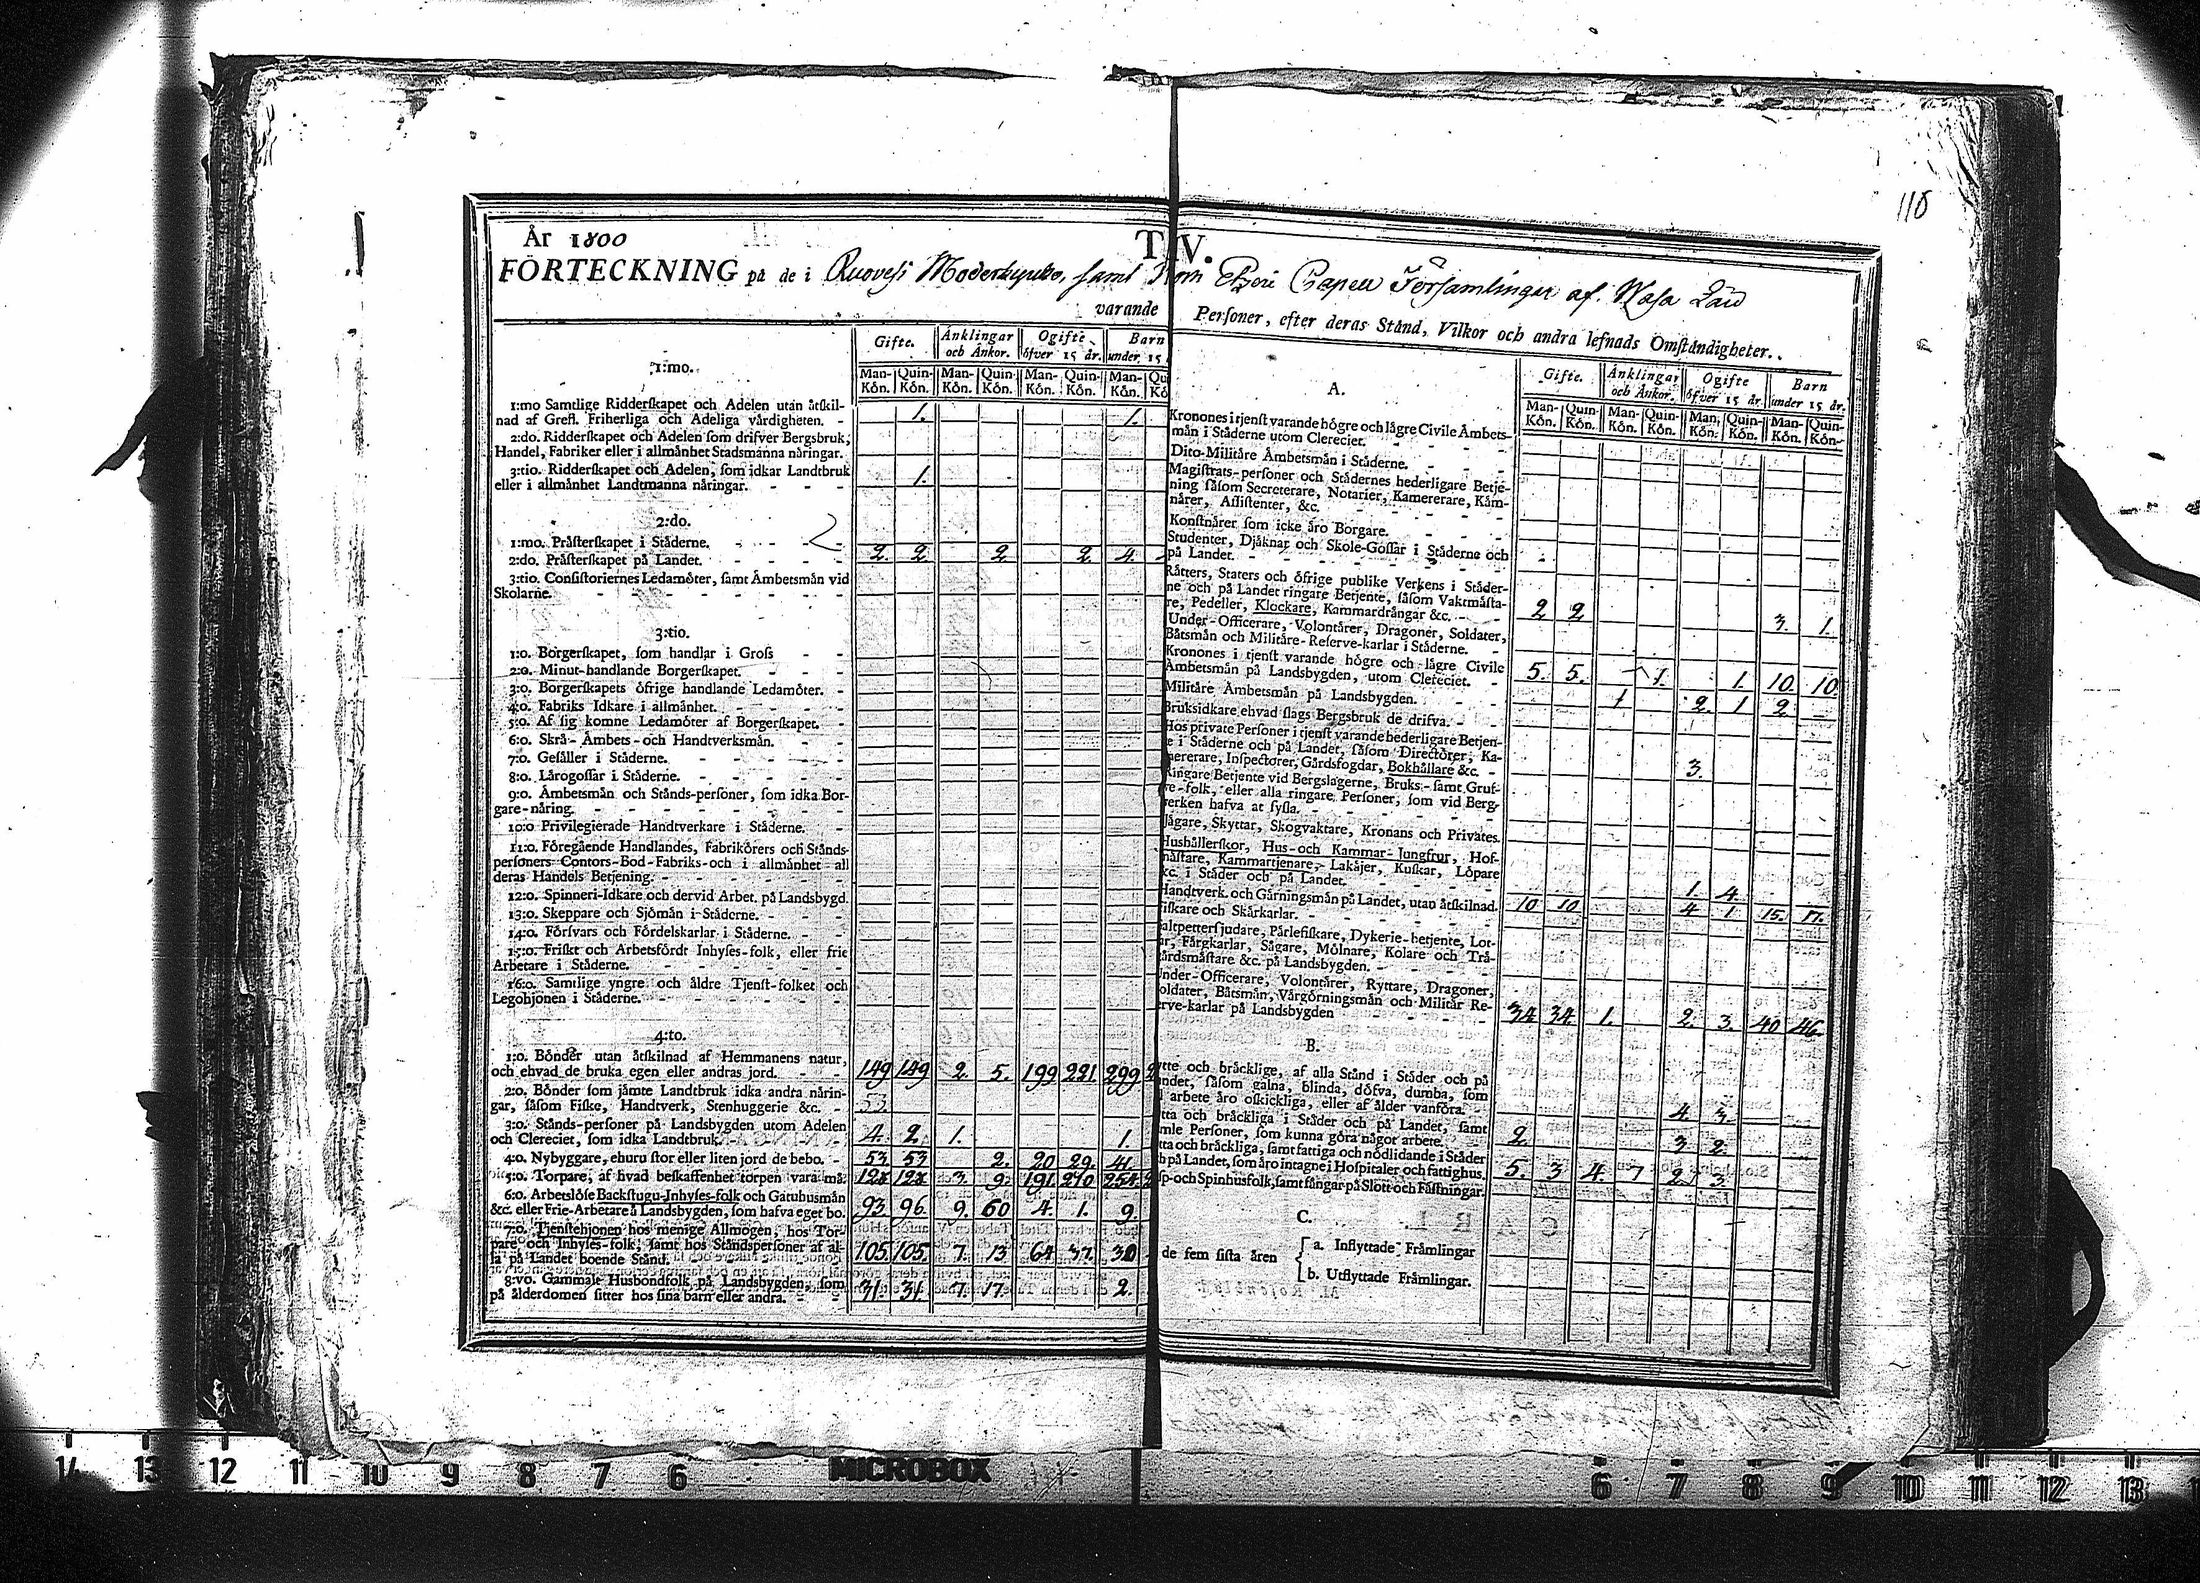 118
År 1800
T. IV.
FÖRTECKNING på de i Ruovesi Moderkyrko, samt Capell Församlingar af Wasa Län
varande Personer, efter deras Stånd, Vilkor och andra lefnads Omständigheter.
Gifte. Änklingar och Änkor. Ogifte öfver 15 år. Barn under 15
Man-Kön. Quin-Kön. Man-Kön. Quin-Kön. Man-Kön. Quin-Kön. Man-Kön. Qu Kö
1:mo.
1:mo Samtlige Ridderskapet och Adelen utan åtskil-
nad af Grefl. Friherliga och Adeliga värdigheten. - 1. 1.
2:do. Ridderskapet och Adelen som drifver Bergsbruk,
Handel, Fabriker eller i allmänhet Stadsmanna näringar.
3:tio. Ridderskapet och Adelen, som idkar Landtbruk
eller i allmänhet Landtmanna näringar. - - - 1.
2:do.
1:mo. Prästerskapet i Städerne. - - - -
2:do. Prästerskapet på Landet. - - - - 2. 2. 2. 2. 4.
3:tio. Consistoriernes Ledamöter, samt Ämbetsmän vid
Skolarne. - - - - - - -
3:tio.
1:o. Borgerskapet, som handlar i Gross - -
2:o. Minut-handlande Borgerskapet. - - -
3:o. Borgerskapets öfrige handlande Ledamöter. -
4:o. Fabriks Idkare i allmänhet. - - - -
5:o. Af sig komne Ledamöter af Borgerskapet. -
6:o. Skrå- Ämbets-och Handtverksmän. - -
7:o. Gesäller i Städerne. - - - - -
8:o. Lärogossar i Städerne. - - - - -
9:o. Ämbetsmän och Stånds-personer, som idka Bor-
gare-näring. - - - - - - -
10:o Privilegierade Handtverkare i Städerne. -
11:o. Föregående Handlandes, Fabrikörers och Stånds-
personers Contors-Bod-Fabriks-och i allmänhet all
deras Handels Betjening. - - - - -
12:o. Spinneri-Idkare och dervid Arbet. på Landsbygd.
13:o. Skeppare och Sjömän i Städerne. - - -
14:o. Försvars och Fördelskarlar i Städerne. - -
15:o. Friskt och Arbetsfördt Inhyses-folk, eller frie
Arbetare i Städerne. - - - - - -
16:o. Samtlige yngre och äldre Tjenst-folket och
Legohjonen i Städerne. - - - - -
4:to.
1:o. Bönder utan åtskilnad af Hemmanens natur,
och ehvad de bruka egen eller andras jord. - - 149 149 2. 5. 199 221 299
2:o. Bönder som jämte Landtbruk idka andra närin-
gar, såsom Fiske, Handtverk, Stenhuggerie &c. - 53.
3:o. Stånds-personer på Landsbygden utom Adelen
och Clereciet, som idka Landtbruk. 4. 2. 1. 1.
4:o. Nybyggare, ehuru stor eller liten jord de bebo. - 53. 53. 2. 20 29. 41.
5:o. Torpare, af hvad beskaffenhet torpen vara må: 3. 9. 191. 210 254.
6:o. Arbetslöse Backstugu-Inhyses-folk och Gatuhusmän
&c. eller Frie-Arbetare å Landsbygden, som hafva eget bo. 93. 96. 9. 60 4. 1. 9.
7:o. Tjenstehjonen hos menige Allmogen, hos Tor-
pare och Inhyses-folk, samt hos Ståndspersoner af al-
la på Landet boende Stånd. 105. 105. 7. 13. 64. 37. 30
8:vo. Gammale Husbondfolk på Landsbygden, som
på ålderdomen sitter hos sina barn eller andra. - - 31. 31. 7. 17. 2.
Gifte. Änklingar och Änkor. Ogifte öfver 15 år. Barn under 15 år.
Man-Kön. Quin-Kön. Man-Kön. Quin-Kön. Man-Kön. Quin-Kön. Man-Kön. Quin-Kön.
A.
Kronones i tjenst varande högre och lägre Civile Ämbets-
män i Städerne utom Clereciet. - - - -
Dito-Militäre Ämbetsmän i Städerne. - - -
Magistrats-personer och Städernes hederligare Betje-
ning såsom Secreterare, Notarier, Kamererare, Käm-
närer, Assistenter, &c. - - - - -
Konstnärer som icke äro Borgare. - - -
Studenter, Djäknar och Skole-Gossar i Städerne och
på Landet. - - - - - - -
Rätters, Staters och öfrige publike Verkens i Städer-
ne och på Landet ringare Betjente, såsom Vaktmästa-
re, Pedeller, Klockare, Kammardrängar &c. - - 2 2 3. 1.
Under-Officerare, Volontärer, Dragoner, Soldater,
Båtsmän och Militäre-Reserve-karlar i Städerne. -
Kronones i tjenst varande högre och lägre Civile
Ämbetsmän på Landsbygden, utom Clereciet. - 5. 5. 1. 1. 10. 10.
Militäre Ämbetsmän på Landsbygden. - - 1 2. 1 2
Bruksidkare ehvad slags Bergsbruk de drifva. - -
Hos private Personer i tjenst varande hederligare Betjen-
e i Städerne och på Landet, såsom Directörer, Ka-
mererare, Inspectorer, Gårdsfogdar, Bokhållare &c. - 3.
Ringare Betjente vid Bergslagerne, Bruks-samt Gruf-
ve-folk, eller alla ringare Personer, som vid Berg-
verken hafva at syssla. - - - - -
Jägare, Skyttar, Skogvaktare, Kronans och Privates.
Hushållerskor, Hus-och Kammar-Jungfrur, Hof-
mästare, Kammartjenare, Lakäjer, Kuskar, Löpare
&c. i Städer och på Landet. - - - - 1. 4.
Handtverk och Gärningsmän på Landet, utan åtskilnad. 10 10 4 1 15. 17.
Fiskare och Skärkarlar. - - - - -
altpettersjudare, Pärlefiskare, Dykerie-betjente, Lot-
ar, Färgkarlar, Sågare, Mölnare, Kolare och Trä-
gårdsmästare &c. på Landsbygden. - - - -
nder-Officerare, Volontärer, Ryttare, Dragoner,
oldater, Båtsmän, Vårgörningsmän och Militär Re-
erve-karlar på Landsbygden - - - - 34 34. 1. 2. 3. 40 46.
B.
tte och bräcklige, af alla Stånd i Städer och på
ndet, såsom galna, blinda, döfva, dumba, som
l arbete äro oskickliga, eller af ålder vanföra. - 4. 3.
tta och bräckliga i Städer och på Landet, samt
mle Personer, som kunna göra något arbete. - 2. 3 2.
tta och bräckliga, samt fattiga och nödlidande i Städer
h på Landet, som äro intagne i Hospitaler och fattighus. 5. 3 4. 7 2. 3.
sp-och Spinhusfolk, samt fångar på Slott och Fästningar.
C.
de fem sista åren
a. Inflyttade Främlingar
b. Utflyttade Främlingar.
14 13 12 11 10 9 8 7 6 MICROBOX 6 7 8 9 10 11 12 13